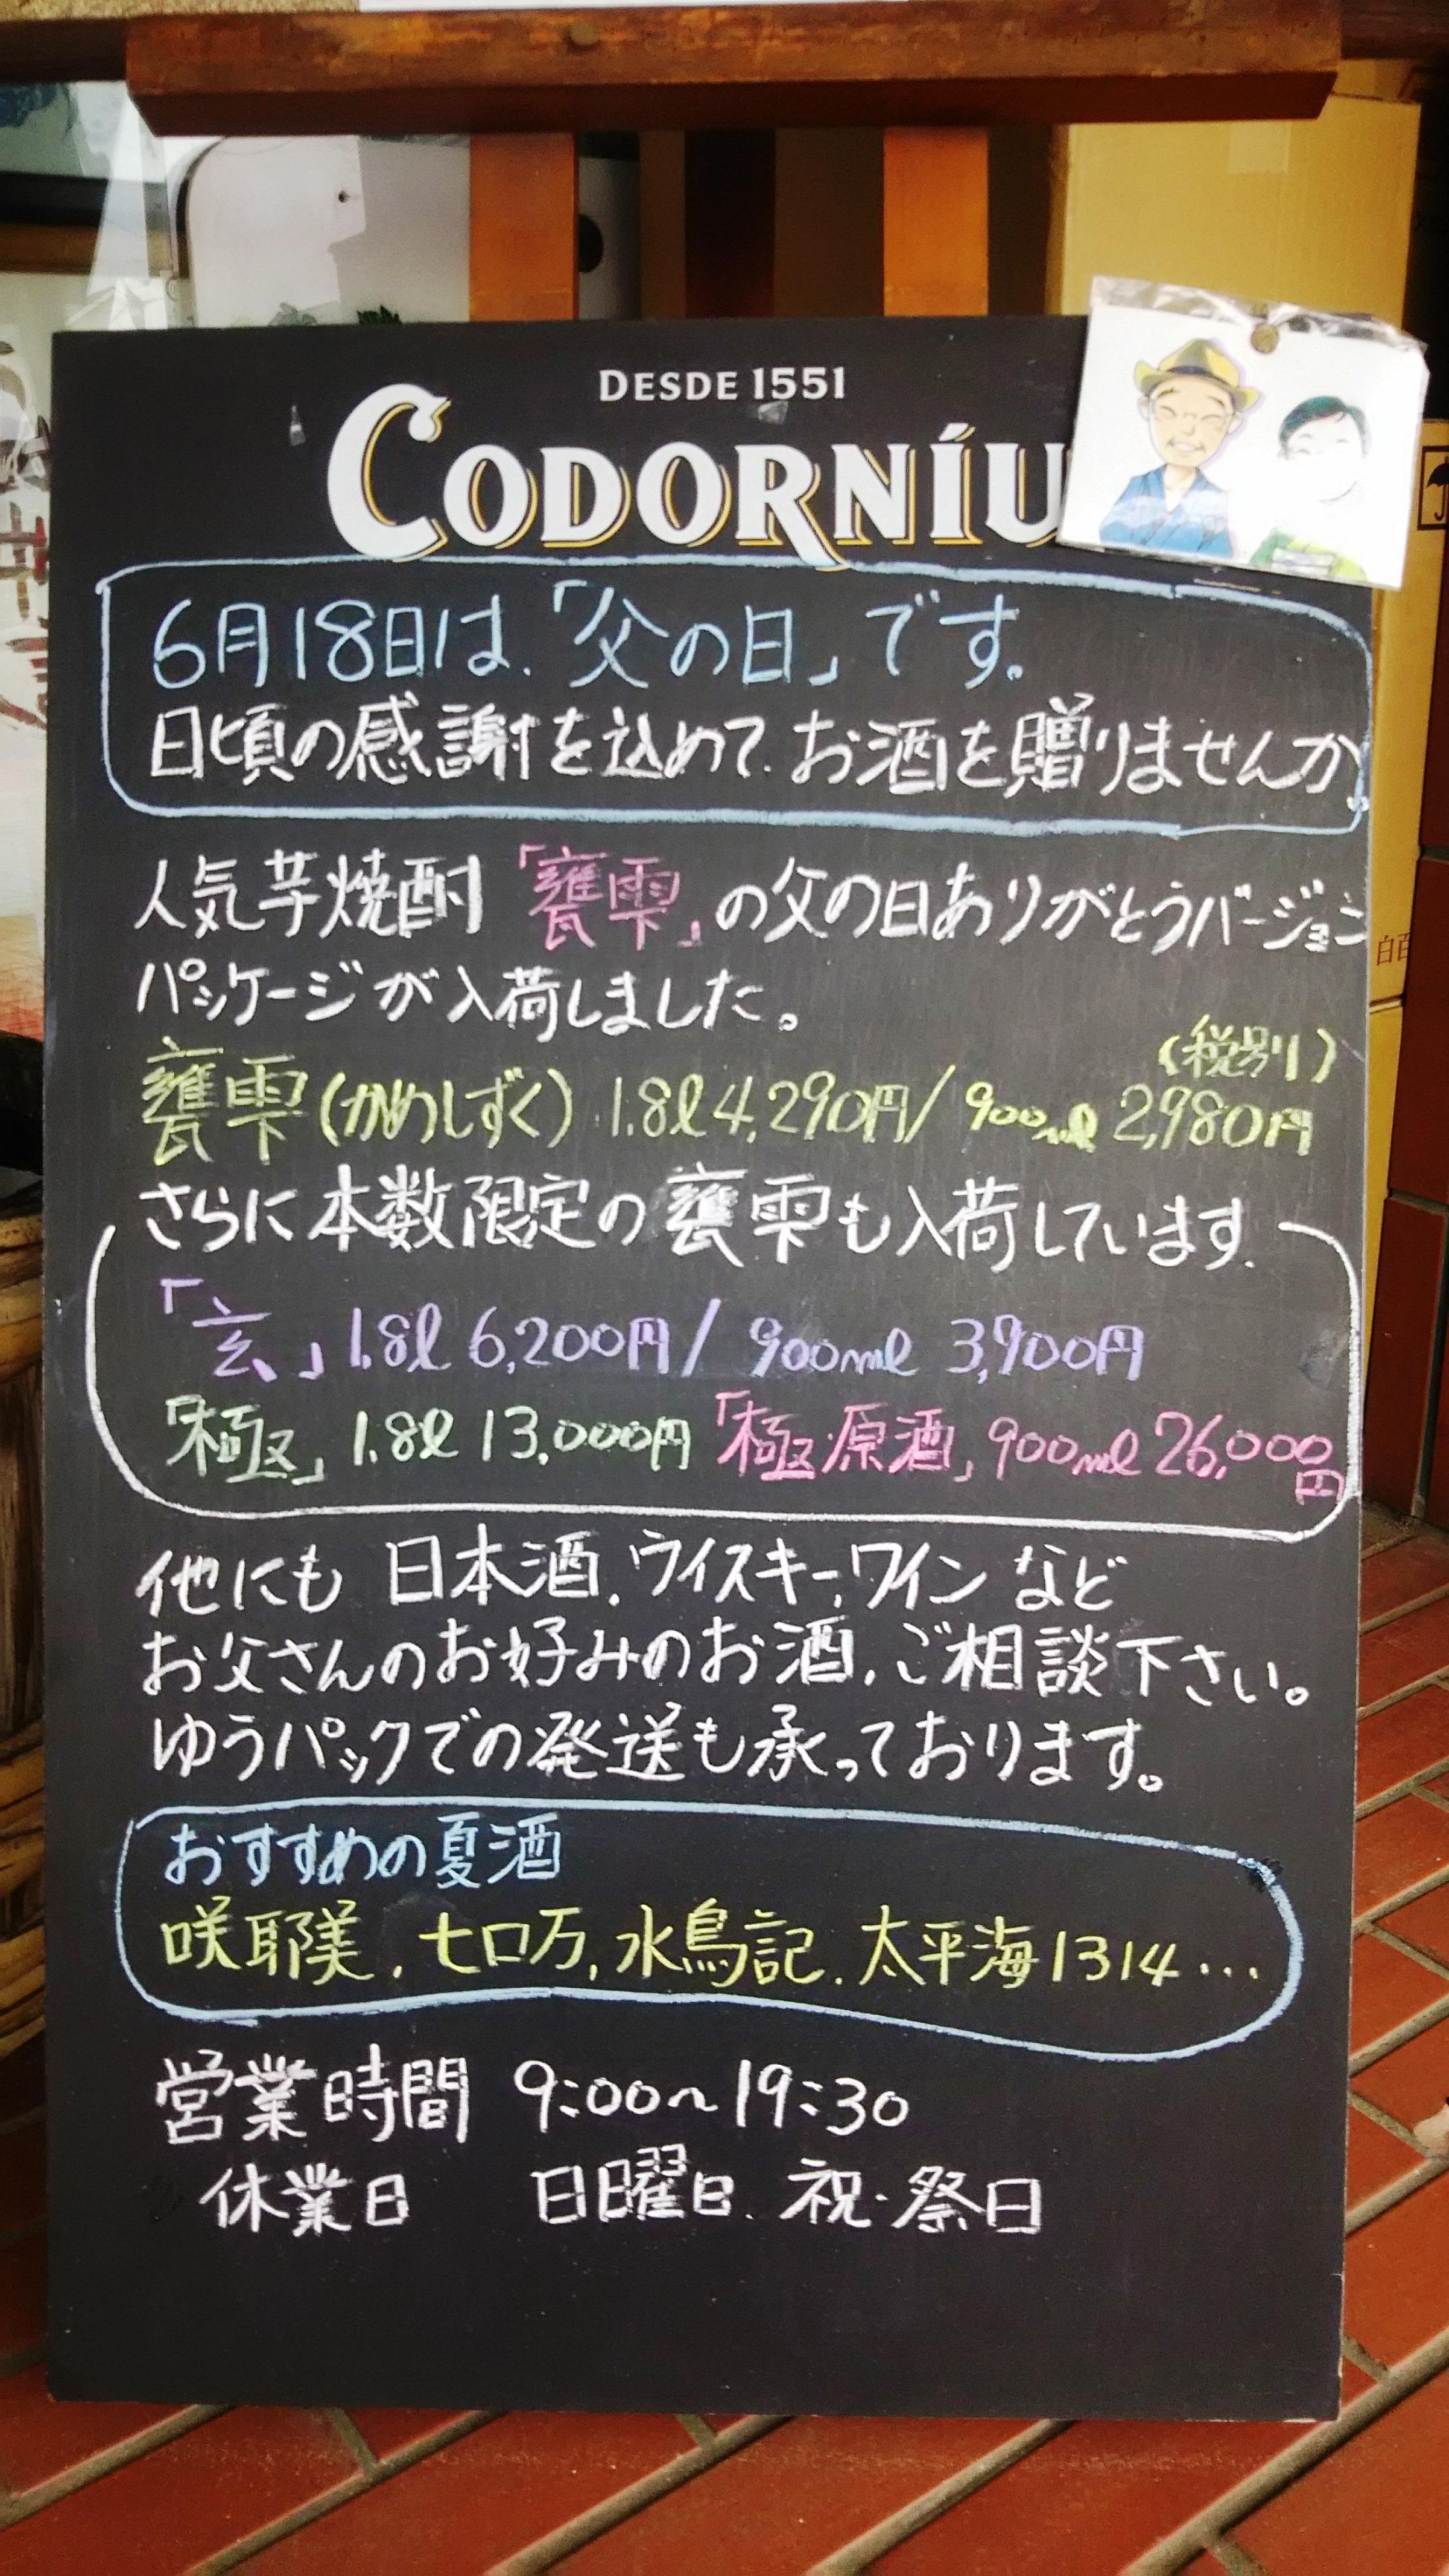 DESDE 1551
CODORNÍU
6月18日は、「父の日」です。
日頃の感謝を込めて、お酒を贈りませんか。
人気芋焼酎「甕雫」の父の日ありがとうバージョン
パッケージが入荷しました。
(税別)
甕雫(かめしずく) 1.8ℓ 4,290円/900mℓ 2,980円
さらに本数限定の甕雫も入荷しています。
「玄」1.8ℓ 6,200円/900mℓ 3,900円
「極」1.8ℓ 13,000円「極・原酒」900mℓ 26,000円
他にも 日本酒、ウイスキー、ワイン など
お父さんのお好みのお酒、ご相談下さい。
ゆうパックでの発送も承っております。
おすすめの夏酒
咲耶美、七ロ万、水鳥記、太平海1314…
営業時間 9:00~19:30
休業日 日曜日、祝・祭日